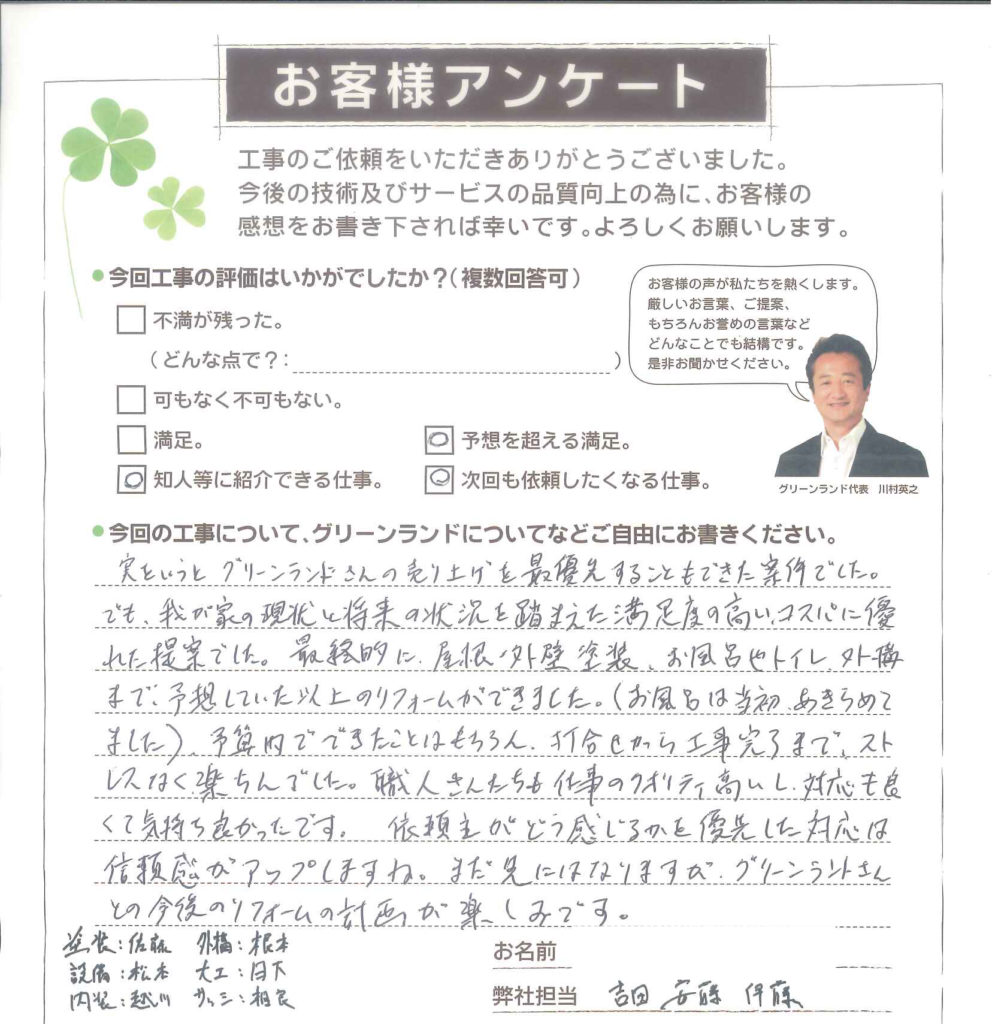 お客様アンケート
工事のご依頼をいただきありがとうございました。
今後の技術及びサービスの品質向上の為に、お客様の
感想をお書き下されば幸いです。よろしくお願いします。
今回工事の評価はいかがでしたか？（複数回答可）
不満が残った。
（どんな点で？：　）
可もなく不可もない。
満足。
予想を超える満足。
知人等に紹介できる仕事。
次回も依頼したくなる仕事。
お客様の声が私たちを熱くします。
厳しいお言葉、ご提案、
もちろんお誉めの言葉など
どんなことでも結構です。
是非お聞かせください。
グリーンランド代表　川村英之
今回の工事について、グリーンランドについてなどご自由にお書きください。
実をいうと グリーンランドさんの売り上げを最優先することもできた案件でした。
でも、我が家の現状と将来の状況を踏まえた満足度の高い、コスパに優
れた提案でした。最終的に、屋根・外壁塗装、お風呂やトイレ、外構
まで、予想していた以上のリフォームができました。（お風呂は当初、あきらめて
ました）、予算内でできたことはもちろん、打合せから工事完了まで、スト
レスなく楽ちんでした。職人さんたちも仕事のクオリティ高いし、対応も良
くて気持ち良かったです。 依頼主がどう感じるかを優先した対応は
信頼感がアップしますね。まだ先にはなりますが、グリーンランドさん
との今後のリフォームの計画が楽しみです。
塗装：佐藤 外構：根本
設備：松本 大工：日下
内装：越川 サッシ：相良
お名前
弊社担当 吉田 安藤 伊藤